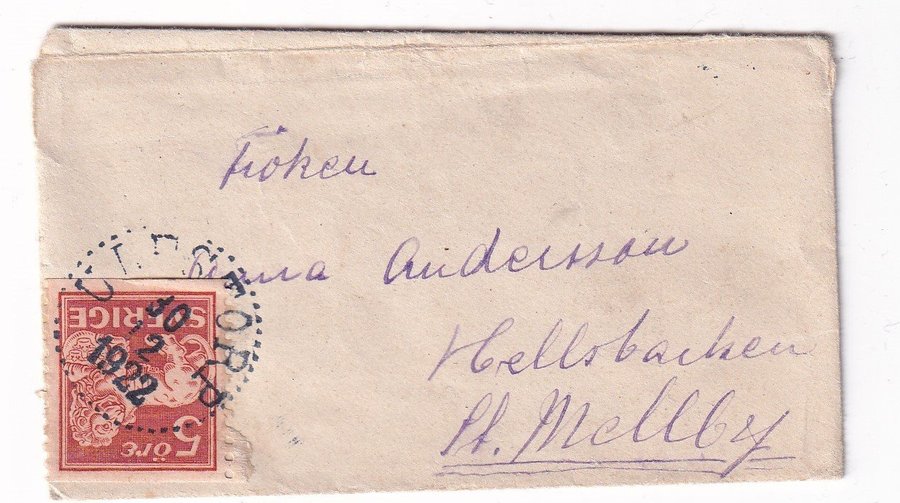 Fröken
Anna Andersson
Hellsbacken
St. Mellby
SVERIGE
5 öre
10
12
1922